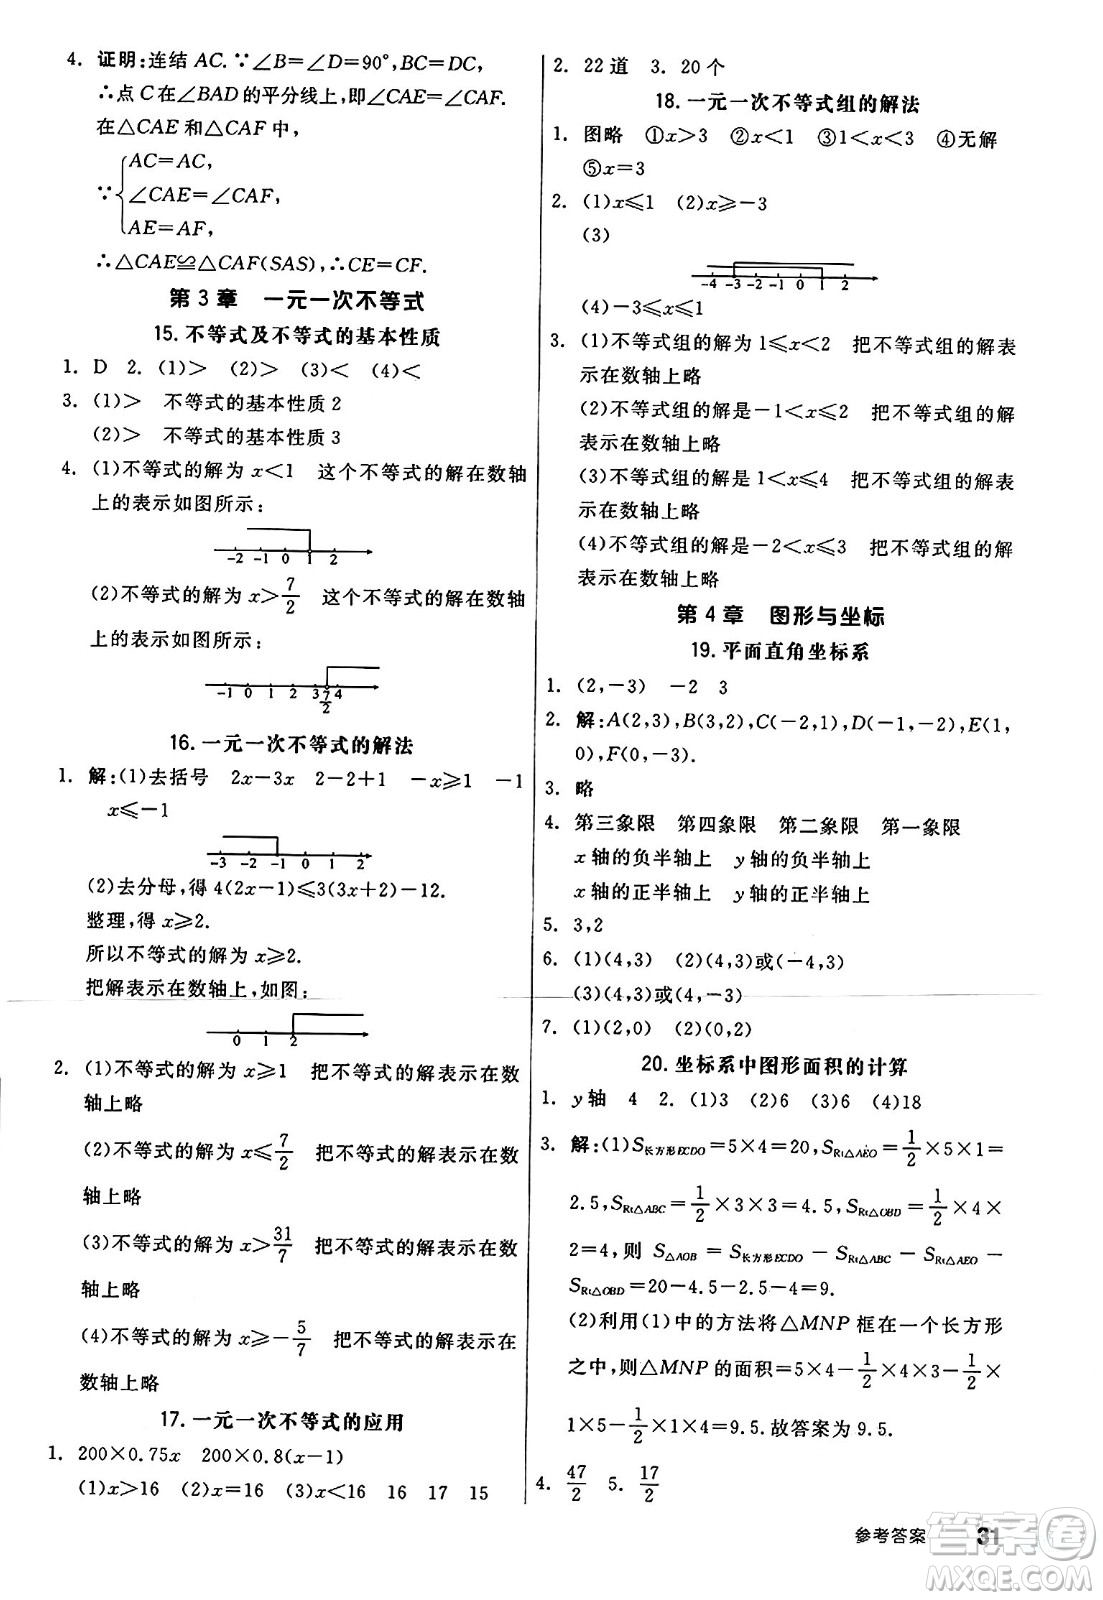 4. 证明:连结 AC.∵∠B=∠D=90°,BC=DC,
∴点 C 在∠BAD 的平分线上,即∠CAE=∠CAF.
在△CAE 和△CAF 中,
AC=AC,
∵ ∠CAE=∠CAF,
AE=AF,
∴△CAE≌△CAF(SAS),∴CE=CF.
第 3 章 一元一次不等式
15. 不等式及不等式的基本性质
1. D 2. (1)> (2)> (3)< (4)<
3. (1)> 不等式的基本性质 2
(2)> 不等式的基本性质 3
4. (1)不等式的解为 x<1 这个不等式的解在数轴
上的表示如图所示:
-2 -1 0 1 2
(2)不等式的解为 x>7/2 这个不等式的解在数轴
上的表示如图所示:
-1 0 1 2 3 7/2 4
16. 一元一次不等式的解法
1. 解:(1)去括号 2x-3x 2-2+1 -x≥1 -1
x≤-1
-3 -2 -1 0 1 2
(2)去分母,得 4(2x-1)≤3(3x+2)-12.
整理,得 x≥2.
所以不等式的解为 x≥2.
把解表示在数轴上,如图:
0 1 2
2. (1)不等式的解为 x≥1 把不等式的解表示在数
轴上略
(2)不等式的解为 x≤7/2 把不等式的解表示在数
轴上略
(3)不等式的解为 x>31/7 把不等式的解表示在数
轴上略
(4)不等式的解为 x≥-5/7 把不等式的解表示在
数轴上略
17. 一元一次不等式的应用
1. 200×0.75x 200×0.8(x-1)
(1)x>16 (2)x=16 (3)x<16 16 17 15
2. 22 道 3. 20 个
18. 一元一次不等式组的解法
1. 图略 ①x>3 ②x<1 ③1<x<3 ④无解
⑤x=3
2. (1)x≤1 (2)x≥-3
(3)
-4 -3 -2 -1 0 1 2
(4)-3≤x≤1
3. (1)不等式组的解为 1≤x<2 把不等式组的解表
示在数轴上略
(2)不等式组的解是-1<x≤2 把不等式组的解
表示在数轴上略
(3)不等式组的解是 1<x≤4 把不等式组的解表
示在数轴上略
(4)不等式组的解是-2<x≤3 把不等式组的解
表示在数轴上略
第 4 章 图形与坐标
19. 平面直角坐标系
1. (2,-3) -2 3
2. 解:A(2,3),B(3,2),C(-2,1),D(-1,-2),E(1,
0),F(0,-3).
3. 略
4. 第三象限 第四象限 第二象限 第一象限
x 轴的负半轴上 y 轴的负半轴上
x 轴的正半轴上 y 轴的正半轴上
5. 3,2
6. (1)(4,3) (2)(4,3)或(-4,3)
(3)(4,3)或(4,-3)
7. (1)(2,0) (2)(0,2)
20. 坐标系中图形面积的计算
1. y 轴 4 2. (1)3 (2)6 (3)6 (4)18
3. 解:(1)S长方形ECDO=5×4=20,SRt△AEO=1/2×5×1=
2.5,SRt△ABC=1/2×3×3=4.5,SRt△OBD=1/2×4×
2=4,则 S△AOB=S长方形ECDO-SRt△ABC-SRt△AEO-
SRt△OBD=20-4.5-2.5-4=9.
(2)利用(1)中的方法将△MNP 框在一个长方形
之中,则△MNP 的面积=5×4-1/2×4×3-1/2×
1×5-1/2×4×1=9.5.故答案为 9.5.
4. 47/2 5. 17/2
参考答案 31
答案圈
MXQE.COM